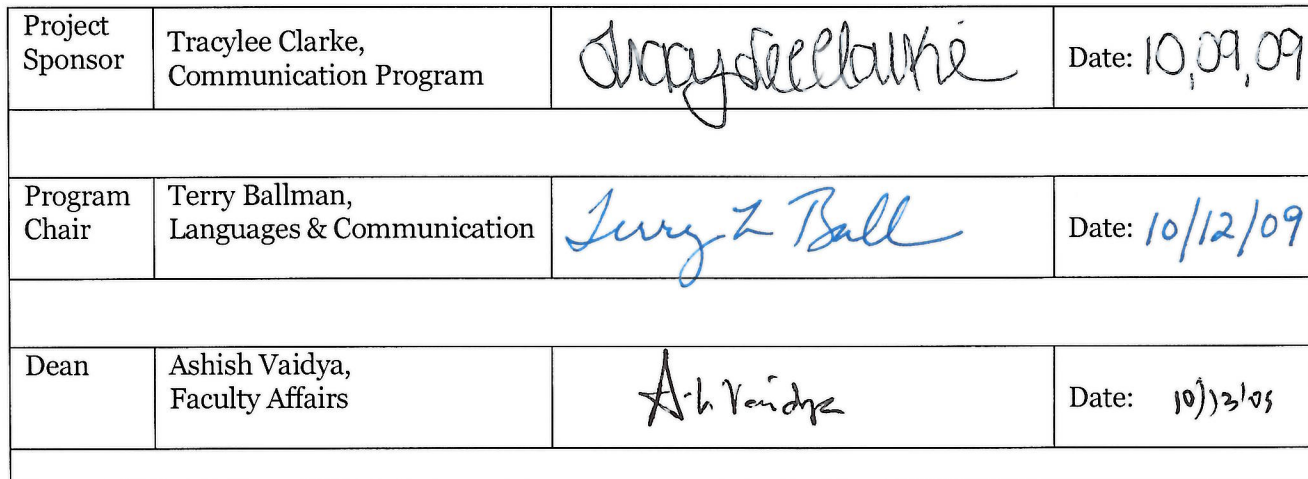 Project
Sponsor
Tracylee Clarke,
Communication Program
Tracylee Clarke
Date: 10,09,09
Program
Chair
Terry Ballman,
Languages & Communication
Terry L Ball
Date: 10/12/09
Dean
Ashish Vaidya,
Faculty Affairs
A Vaidya
Date: